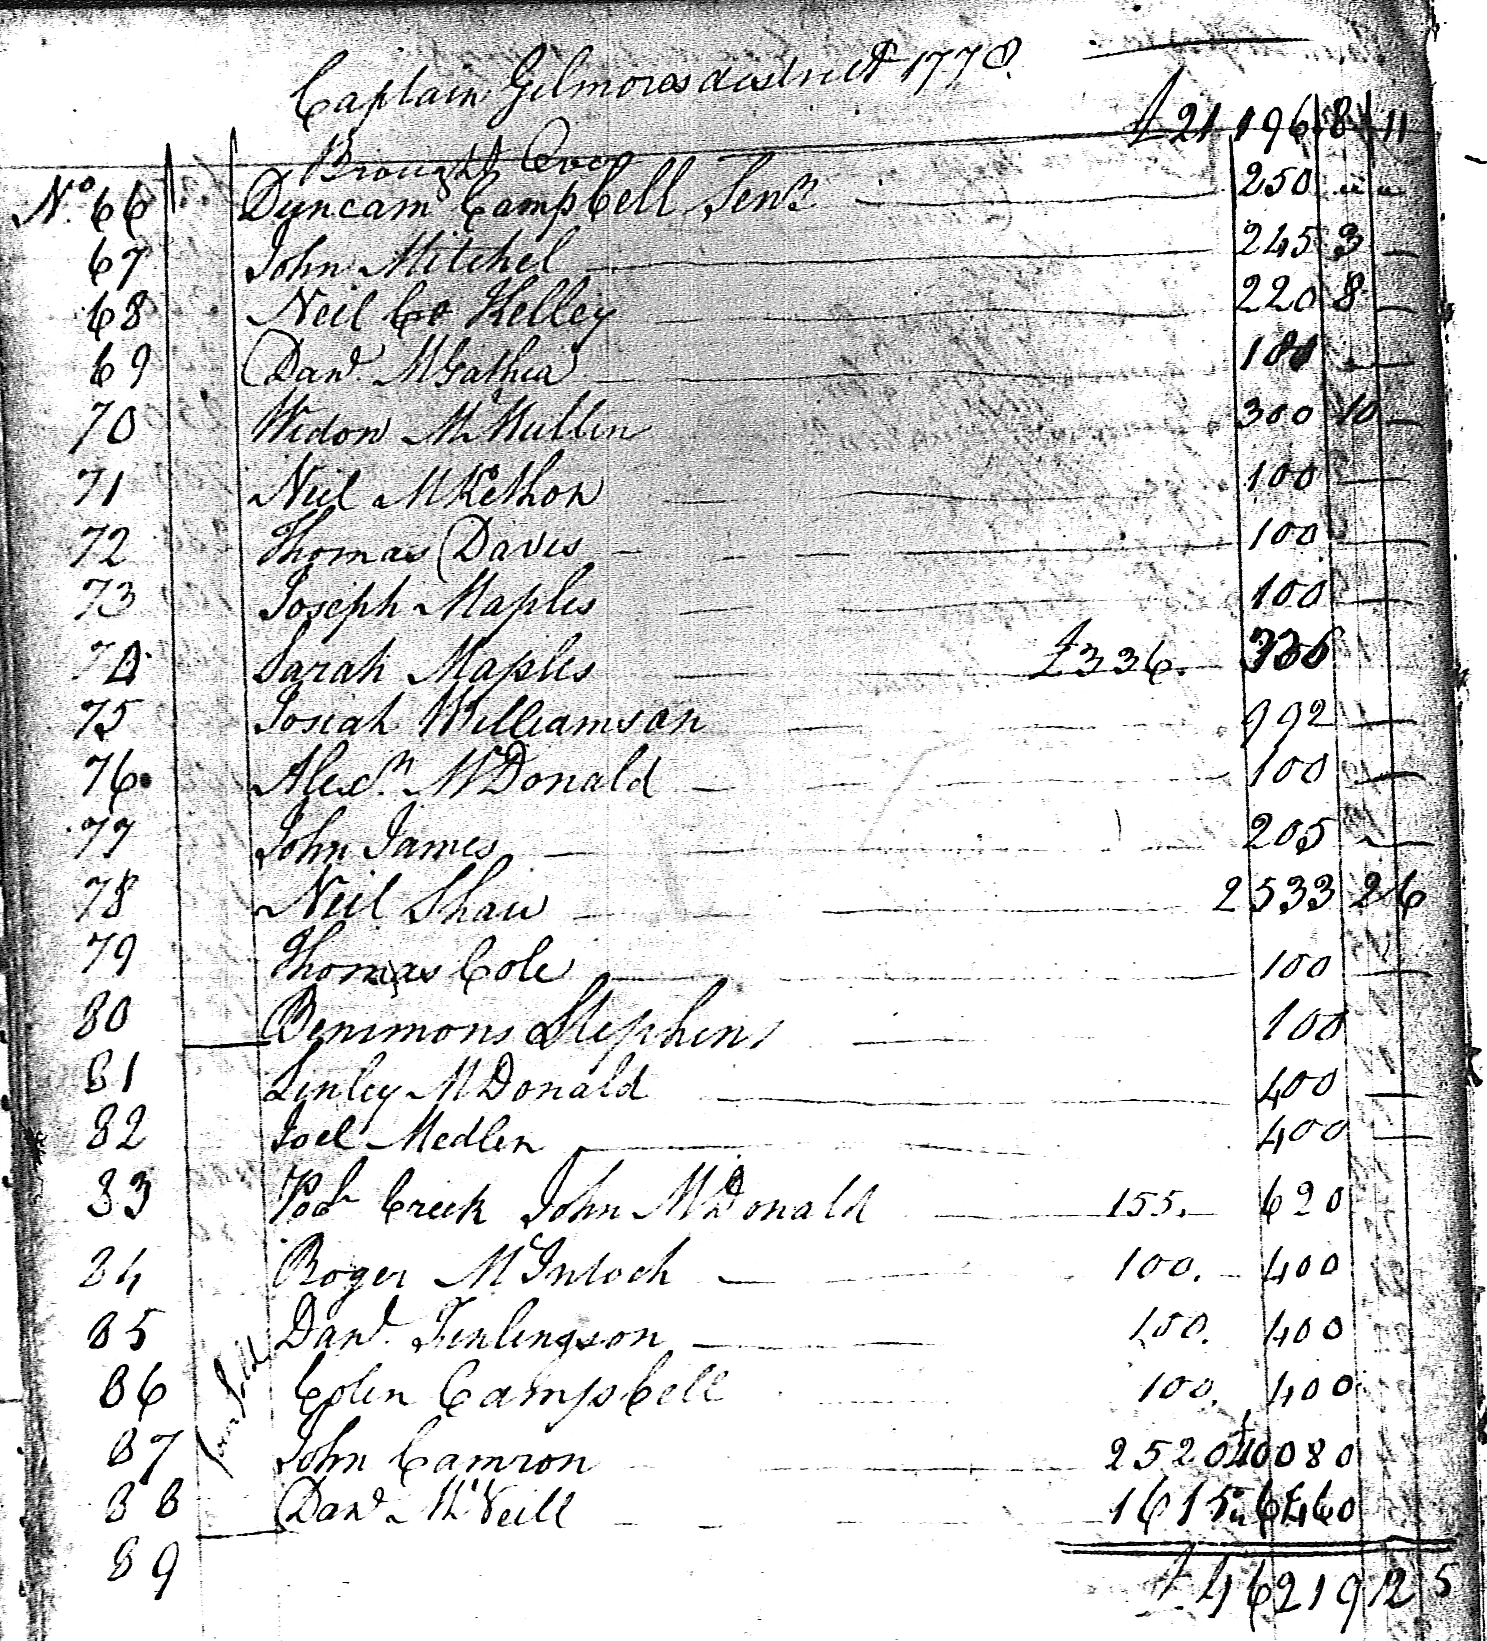 Captain Gilmores district 1778.
Brought Over £21,196 8 11
No. 66 Duncam Campbell Senr. 250 " "
67 John Mitchel 245 3 —
68 Neil Co Kelley 220 8 —
69 Danl. McGathia —
70 Widow McMullin 300 10 —
71 Neil McKethon 100 —
72 Thomas Davis 100 —
73 Joseph Maples 100 —
74 Sarah Maples £336. 336
75 Josiah Williamson 992 —
76 Alexr. McDonald 100 —
77 John James 205 —
78 Neil Shaw 2533 2 6
79 Thomas Cole 100 —
80 Bemmons Stephens 100
81 Finley McDonald 400 —
82 Joel Medlin 400 —
83 Creek John McDonald 155. 620
84 Roger McIntoch 100. 400
85 Danl. Finlingson 100. 400
86 four fold Colin Campbell 100. 400
87 John Camron 2520 10080
88 Danl. McNeill 1615 6460
89 £46219 12 5